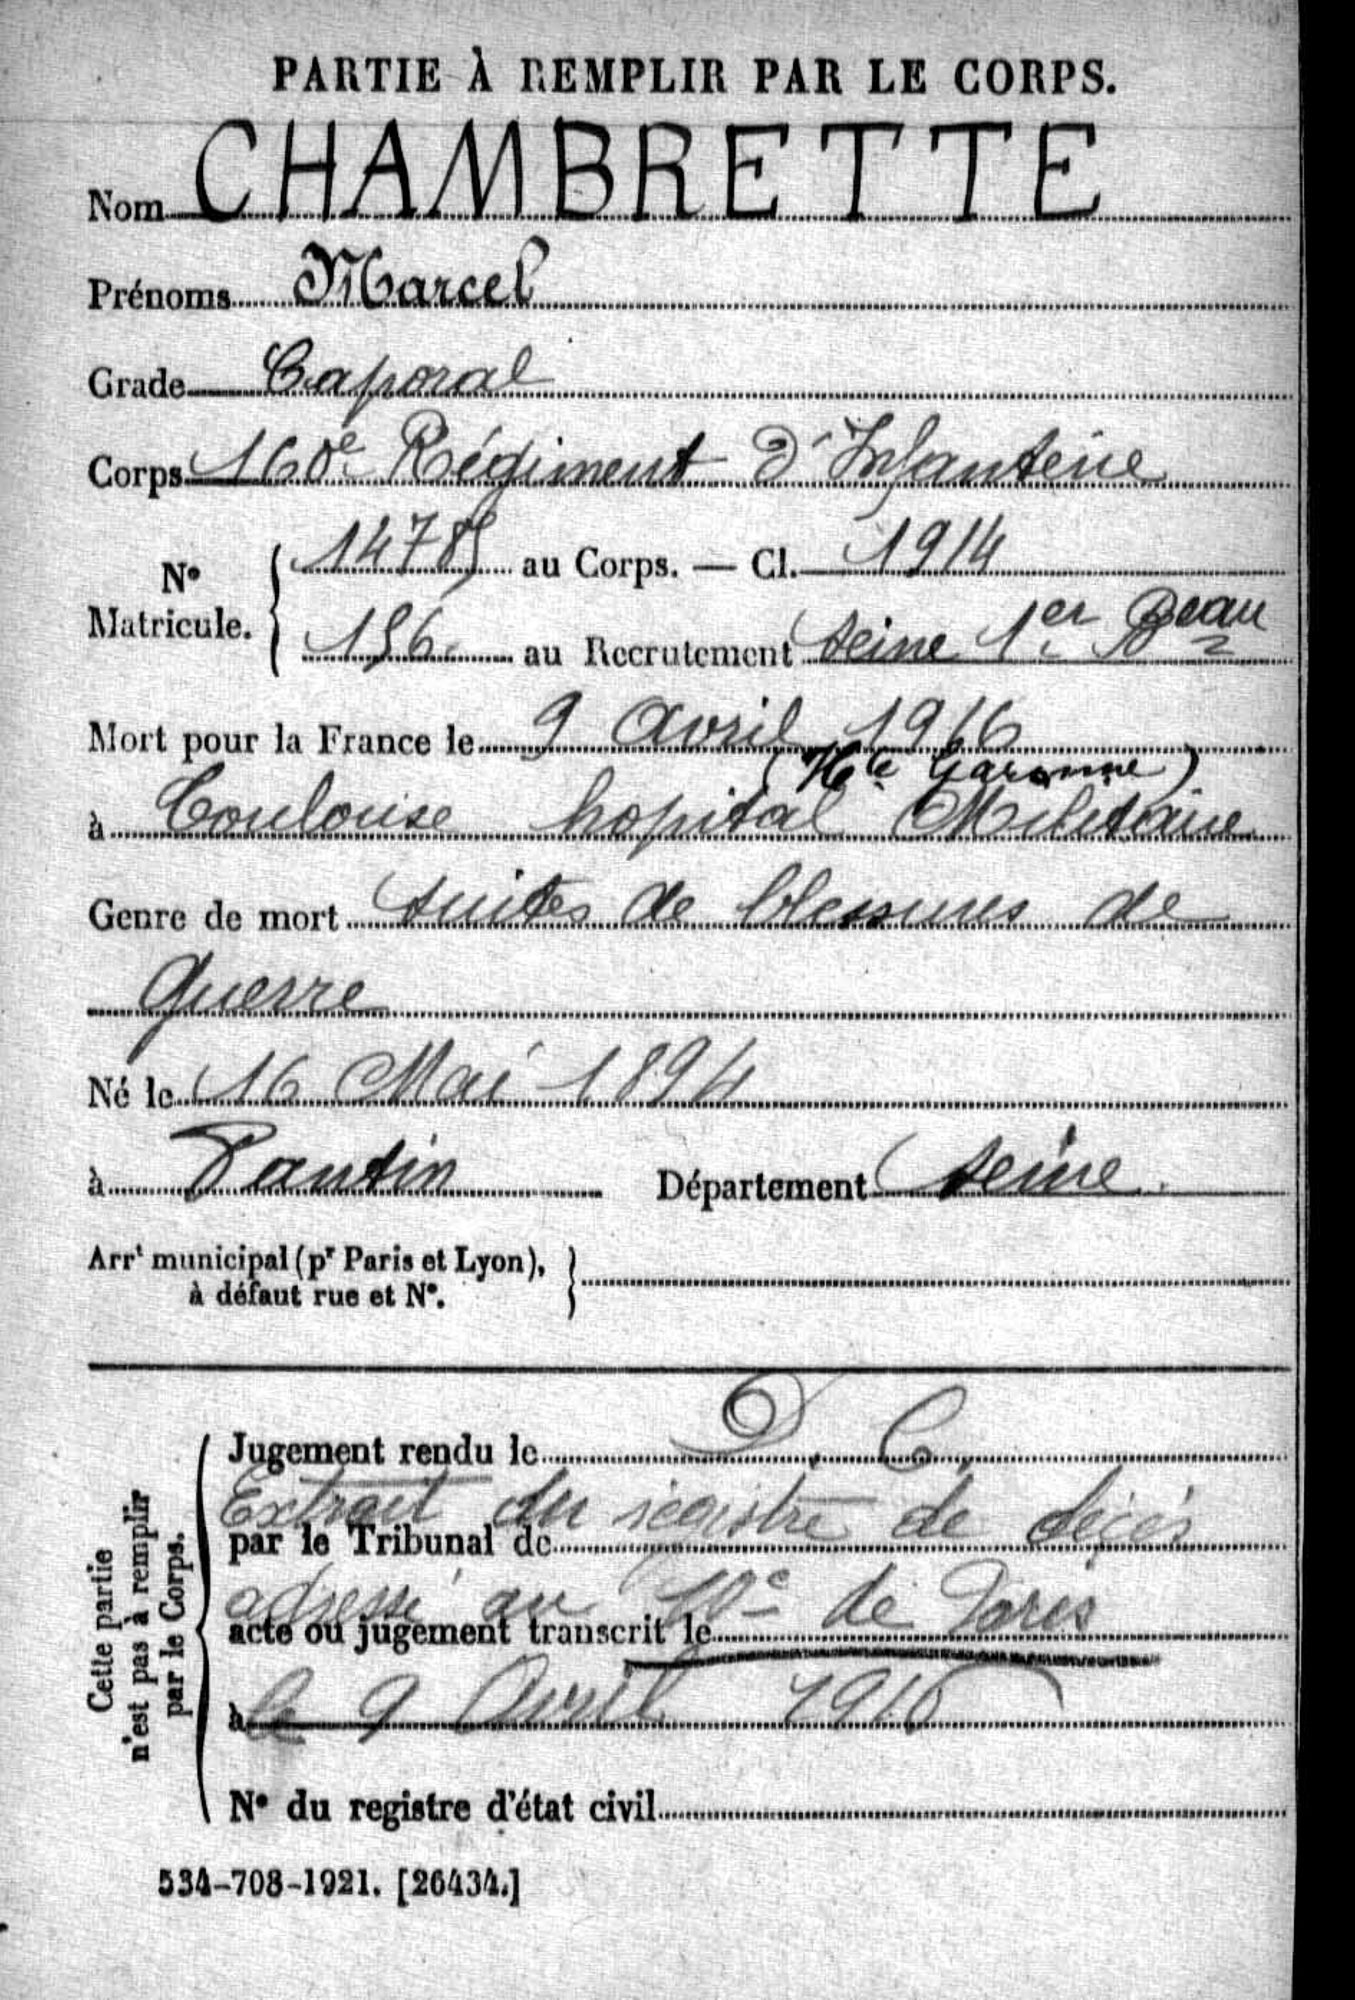 PARTIE À REMPLIR PAR LE CORPS.
Nom CHAMBRETTE
Prénoms Marcel
Grade Caporal
Corps 160e Régiment d'Infanterie
No Matricule. { 14785 au Corps. — Cl. 1914
196 au Recrutement Seine 1er Beau
Mort pour la France le 9 Avril 1916
(Hte Garonne)
à Toulouse hopital Militaire
Genre de mort suites de blessures de
Guerre
Né le 16 Mai 1894
à Pantin Département Seine
Arrt municipal (pr Paris et Lyon),
à défaut rue et No.
Cette partie
n'est pas à remplir
par le Corps.
Jugement rendu le D. C.
Extrait du registre de décès
par le Tribunal de
adressé au 10e de Paris
acte ou jugement transcrit le
à le 9 Avril 1916
No du registre d'état civil
534-708-1921. [26434.]